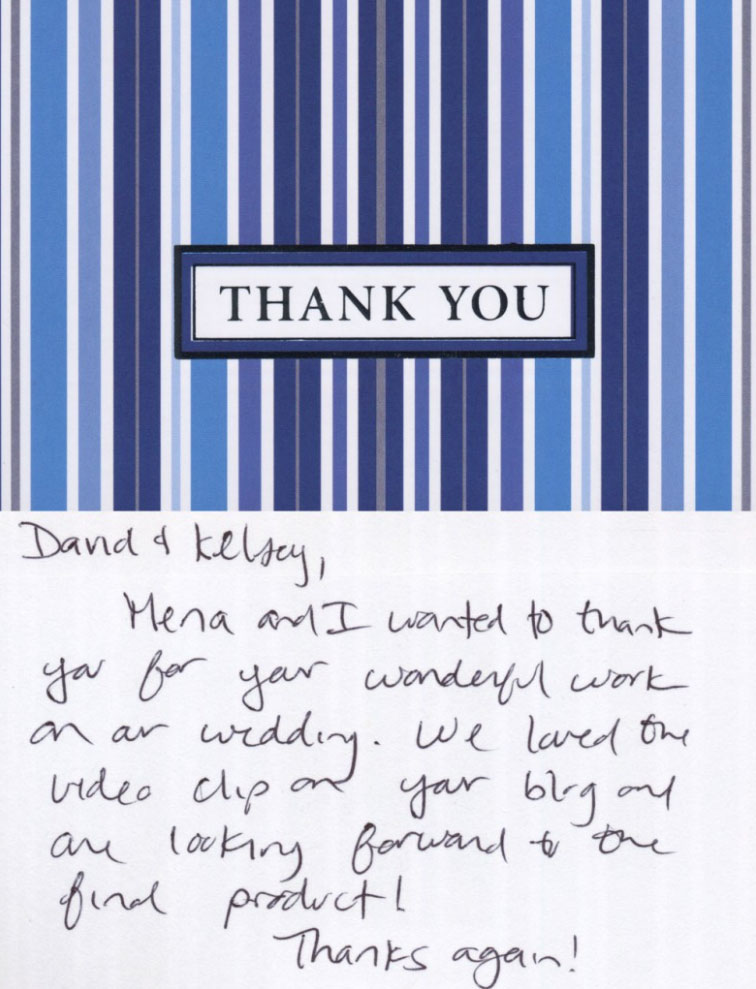 THANK YOU
David & Kelsey,
Mena and I wanted to thank
you for your wonderful work
on our wedding. We loved the
video clip on your blog and
are looking forward to the
final product!
Thanks again!